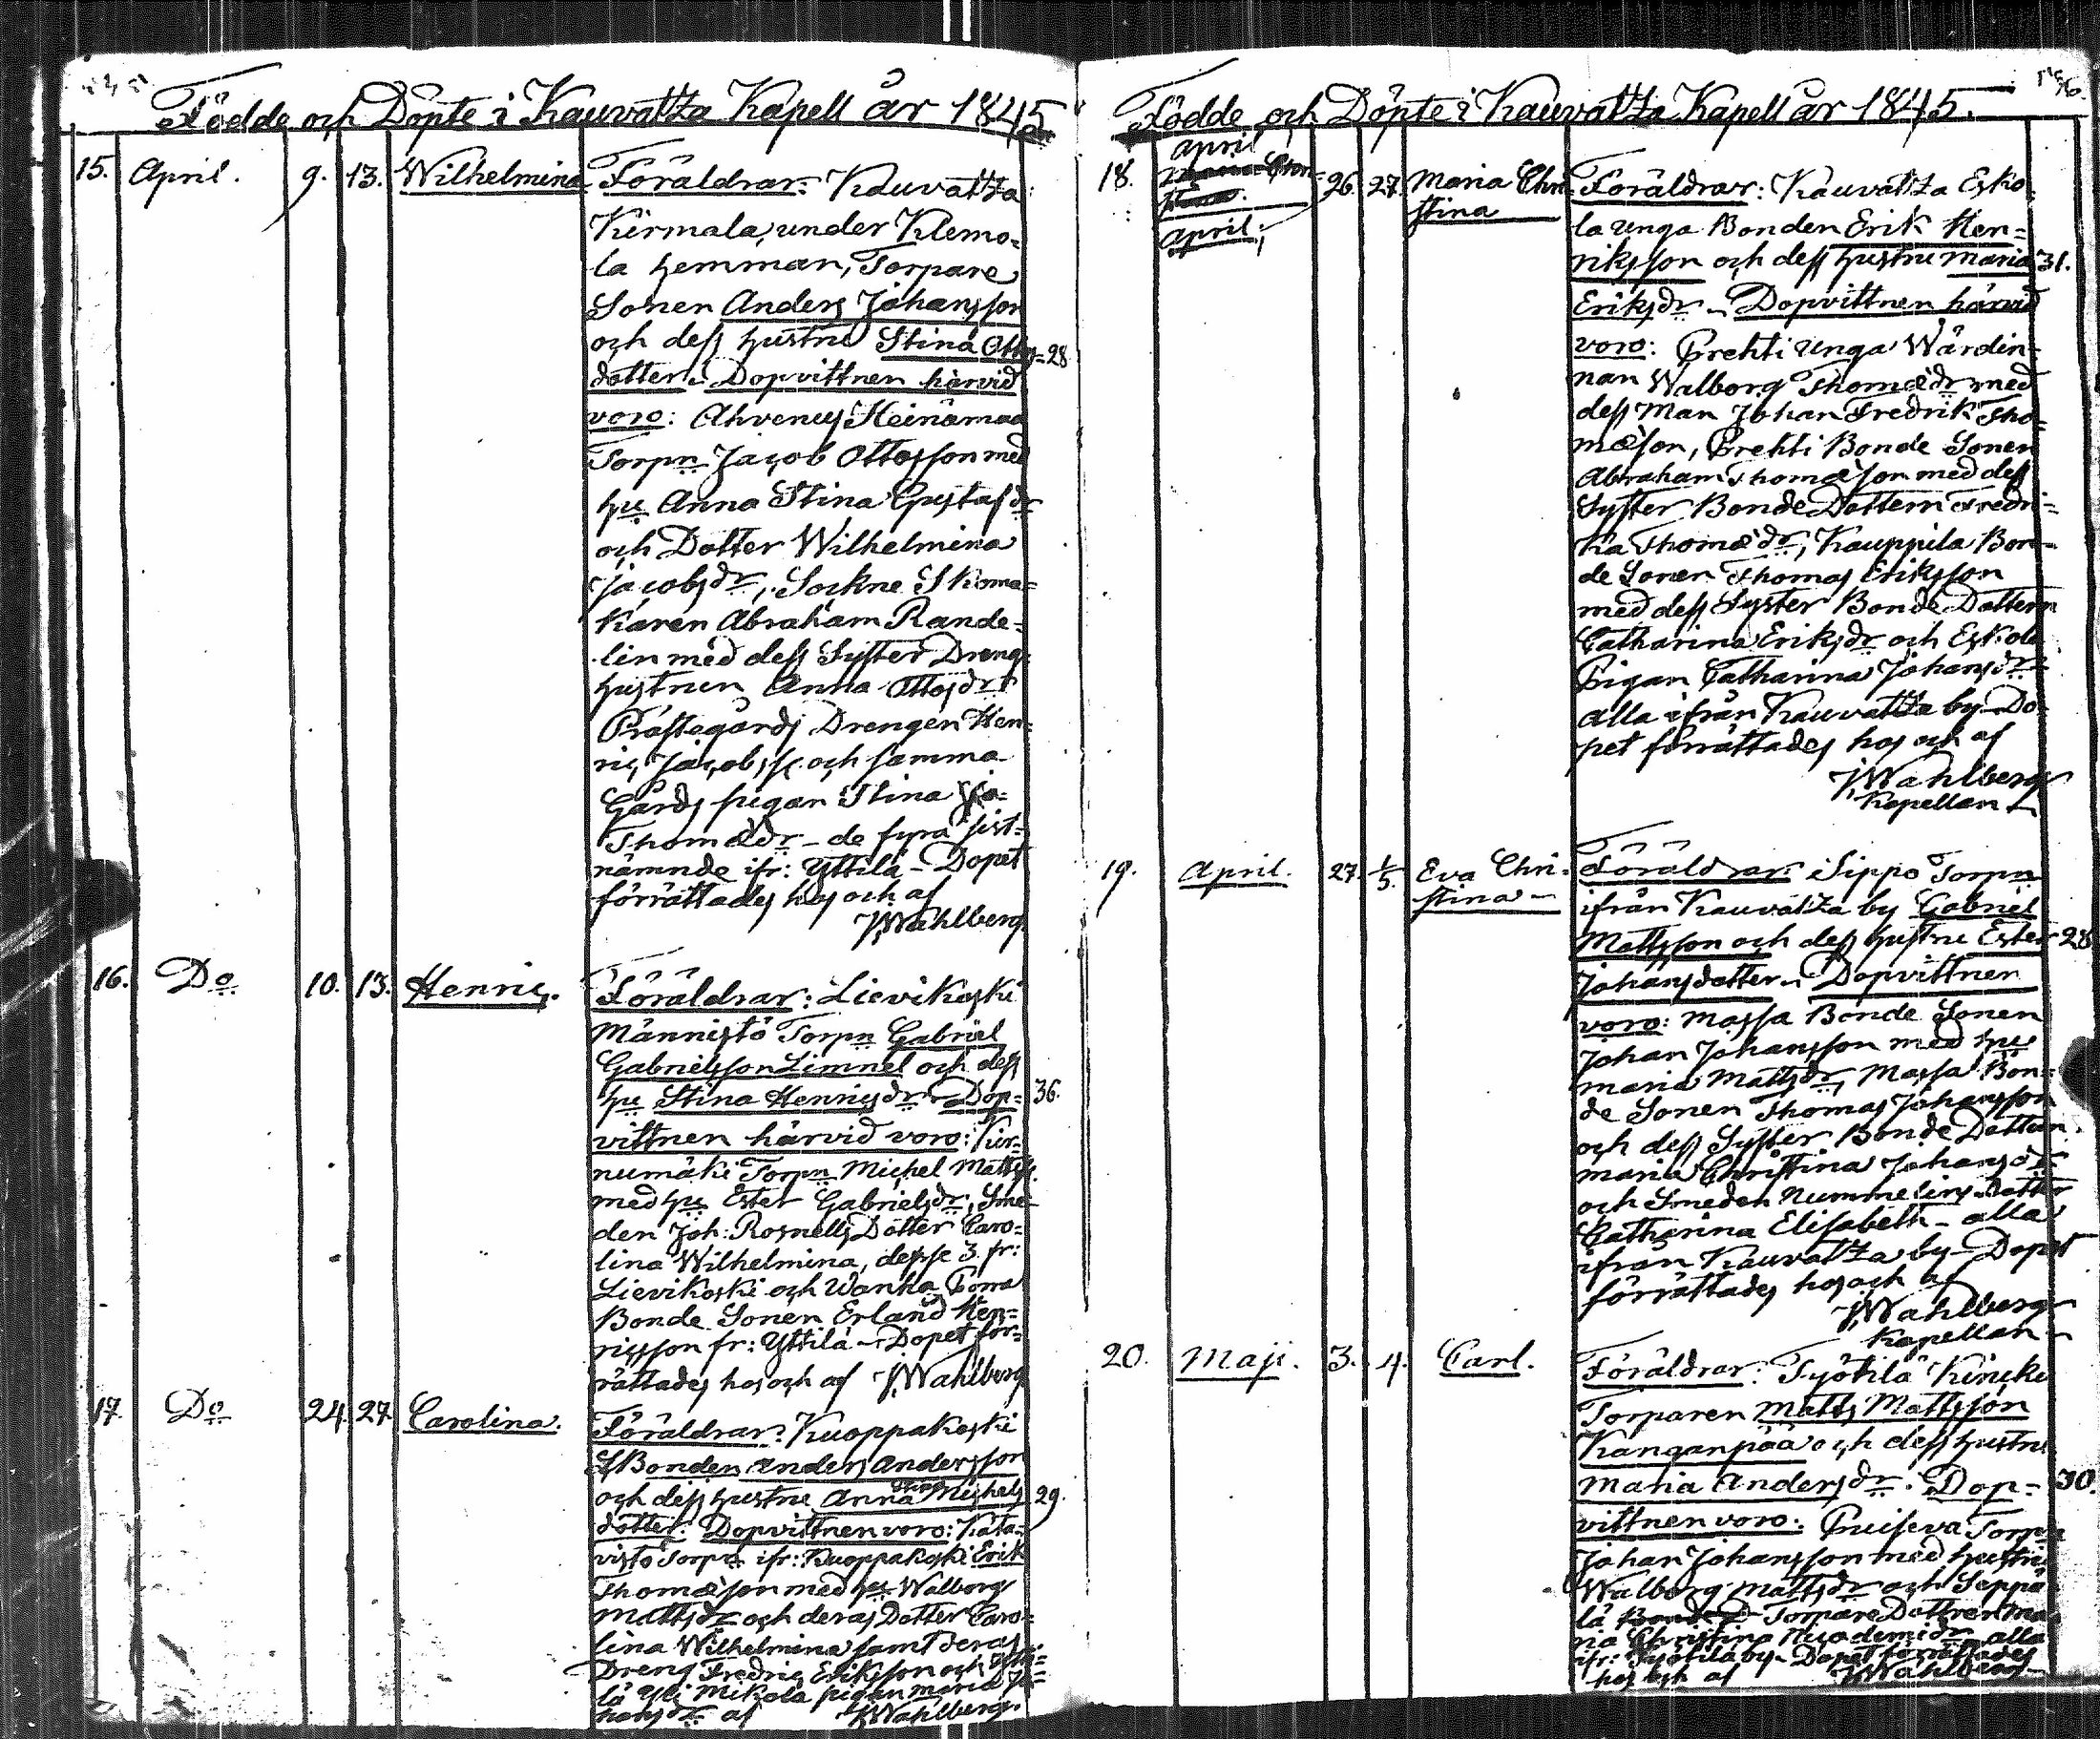 Födde och Döpte i Kauvatza Kapell år 1845
15. April. 9. 13. Wilhelmina Föräldrar: Kauvatza
Kirmala, under Klemo-
la hemman, Torpare
Sonen Anders Johansson
och dess hustru Stina Ottos- 28
dotter. Dopvittnen härvid
voro: Ahvenus Heinämaa
Torpn Jacob Ottosson med
hu Anna Stina Gustafsdr
och Dotter Wilhelmina
Jacobsdr, Sockne Skoma-
karen Abraham Rande-
lin med dess Syster Dreng-
hustrun Anna Ottosdr
Prästegårds Drengen Hen-
ric Jacobss. och samma
Gårds pigan Stina
Thomædr - de fyra sist-
nämnde ifr: Yttilä - Dopet
förrättades hos och af
JWahlberg
16. Do 10. 13. Henric. Föräldrar: Lievikoski
Männistö Torpn Gabriel
Gabrielsson Limnel och dess
hu Stina Henricsdr - Dop- 36.
vittnen härvid voro: Kir-
numäki Torpn Michel Matss.
med hu Ester Gabrielsdr, Sme-
den Joh: Rosnells Dotter Caro-
lina Wilhelmina, desse 3. fr:
Lievikoski och Wanha
Bonde Sonen Erland Hen-
ricsson fr: Yttilä - Dopet för-
rättades hos och af JWahlberg
17. Do 24. 27. Carolina. Föräldrar: Kuoppakoski
Bonden Anders Andersson
och dess hustru Anna Stina Michels 29.
dotter. Dopvittnen voro: Kata-
visto Torpn ifr: Kuoppakoski Erik
Thomæson med hu Walborg
Mattsdr och deras Dotter Caro-
lina Wilhelmina samt deras
Dreng Fredric Eriksson och
lä Yli Mikola pigan Maria Jo-
hansdr af JWahlberg.
Födde och Döpte i Kauvatza Kapell år 1845.
April
18. April. 26. 27. Maria Chri- Föräldrar: Kauvatza Esko-
stina la unga Bonden Erik Hen-
riksson och dess hustru Maria 31.
Eriksdr - Dopvittnen härvid
voro: Prehti unga Wärdin-
nan Walborg Thomædr med
dess Man Johan Fredrik Tho-
mæson, Prehti Bonde Sonen
Abraham Thomæson med dess
Syster Bonde Dottern Fredri-
ka Thomædr, Kauppila Bon-
de Sonen Thomas Eriksson
med dess Syster Bonde Dottern
Catharina Eriksdr och Eskola
Pigan Catharina Johansdr
alla ifrån Kauvatza by - Do-
pet förrättades hos och af
JWahlberg
Kapellan
19. April. 27. 1/5. Eva Chri- Föräldrar: Sippo Torpn
stina - ifrån Kauvatza by Gabriel
Mattsson och dess hustru Ester 28
Johansdotter - Dopvittnen
voro: Massa Bonde Sonen
Johan Johansson med hu
Maria Mattsdr, Massa Bon-
de Sonen Thomas Johansson
och dess Syster Bonde Dottern
Maria Christina Johansdr
och Smeden Nummelins Dotter
Catharina Elisabeth - alla
ifrån Kauvatza by - Dopet
förrättades hos och af
JWahlberg
Kapellan
20. Maji. 3. 4. Carl. Föräldrar: Työtilä
Torparen Matts Mattsson
Kanganpää och dess hustru
Maria Andersdr. Dop- 30.
vittnen voro: Torpn
Johan Johansson med hustru
Walborg Mattsdr och Seppä-
lä Torpare Dottren Ma-
ria Christina Nicodemidr alla
ifr: Työtilä by - Dopet förrättades
hos och af JWahlberg